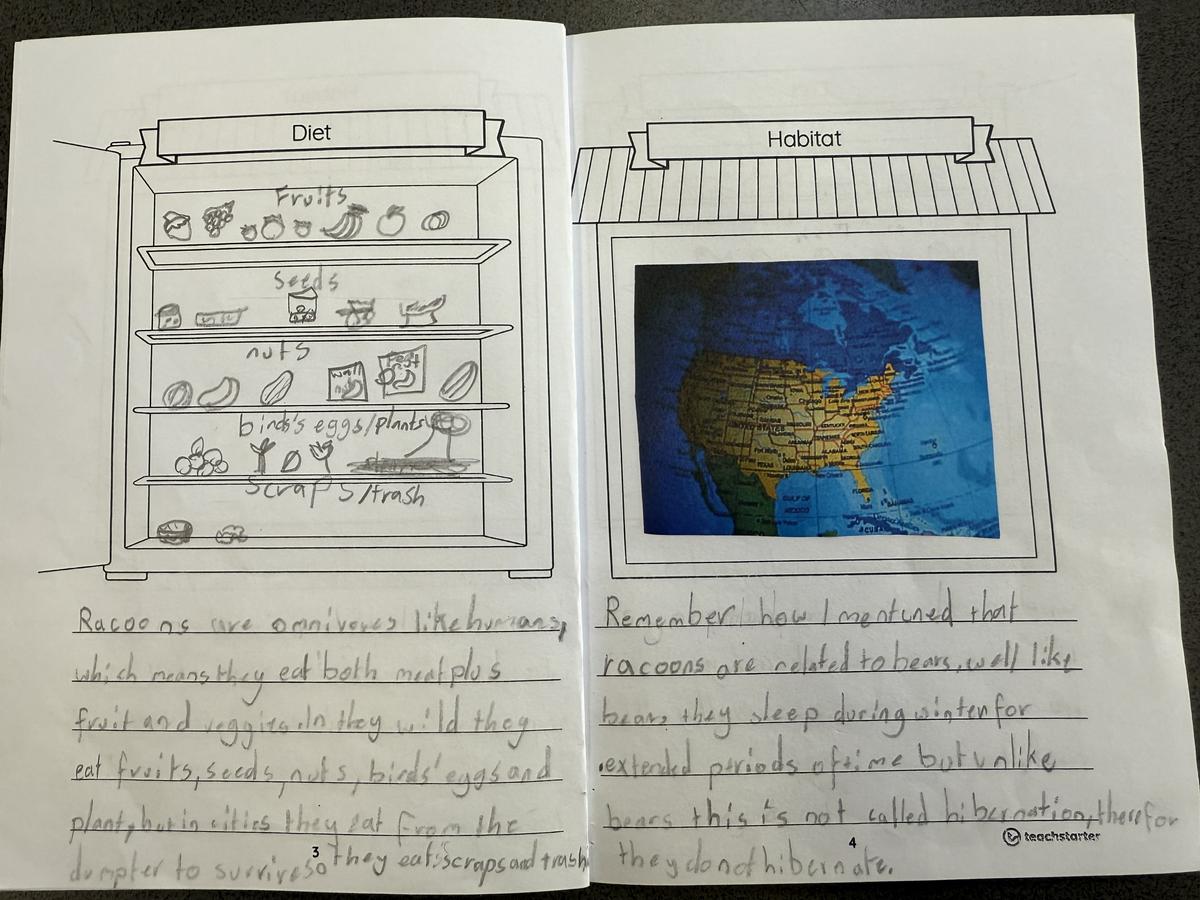 Diet
Fruits
seeds
nuts
wall nuts
birds's eggs/plants
scraps/trash
Racoons are omnivores like humans,
which means they eat both meat plus
fruit and veggies. In they wild they
eat fruits, seeds, nuts, birds' eggs and
plant, but in cities they eat from the
dumpter to survive so they eat scraps and trash
3
Habitat
UNITED STATES
KENTUCKY
TENNESSEE
NORTH CAROLINA
ALABAMA
TEXAS
LOUISIANA
FLORIDA
GULF OF
MEXICO
BAHAMAS
Remember how I mentuned that
racoons are related to bears, well like
bears they sleep during winter for
extended periods of time but unlike
bears this is not called hibernation, therefor
they do not hibernate.
4
teachstarter